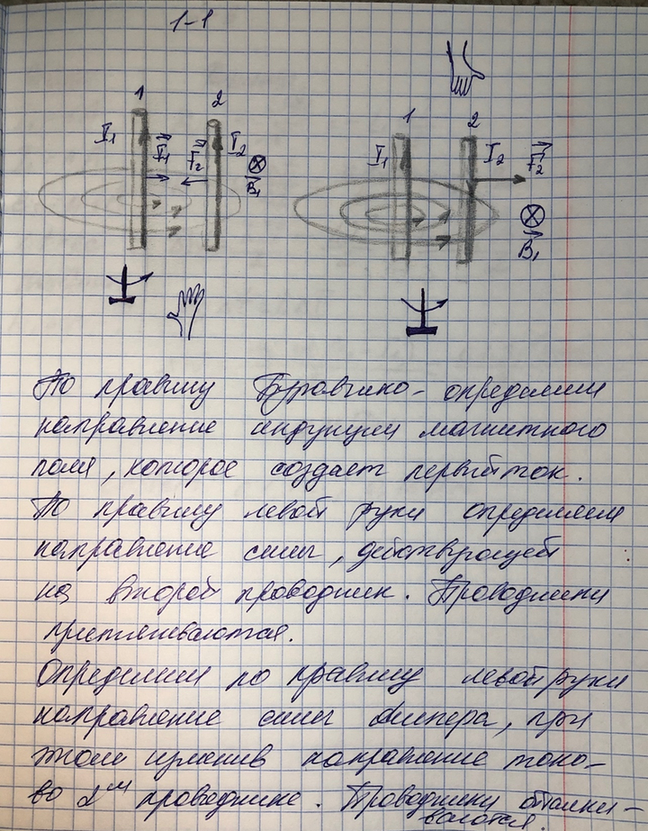 1-1
1
2
1
2
I₁
F₁
F₂
I₂
B₁
I₁
I₂
F₂
B₁
По правилу Буравчика- определим
направление индукции магнитного
поля, которое создает первый ток.
По правилу левой руки определяем
направление силы, действующей
на второй проводник. Проводники
притягиваются.
Определим по правилу левой руки
направление силы Ампера, при
этом изменив направление тока-
во 2ᵒᵐ проводнике. Проводники отталки-
ваются